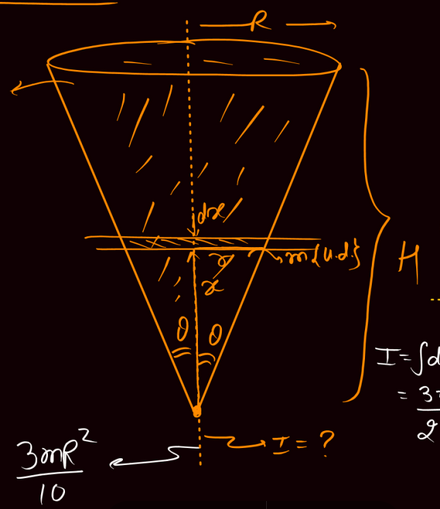 R
dx
r
m{u.d.}
x
H
θ θ
I = ∫d
= 3
2
I = ?
3mR²
10